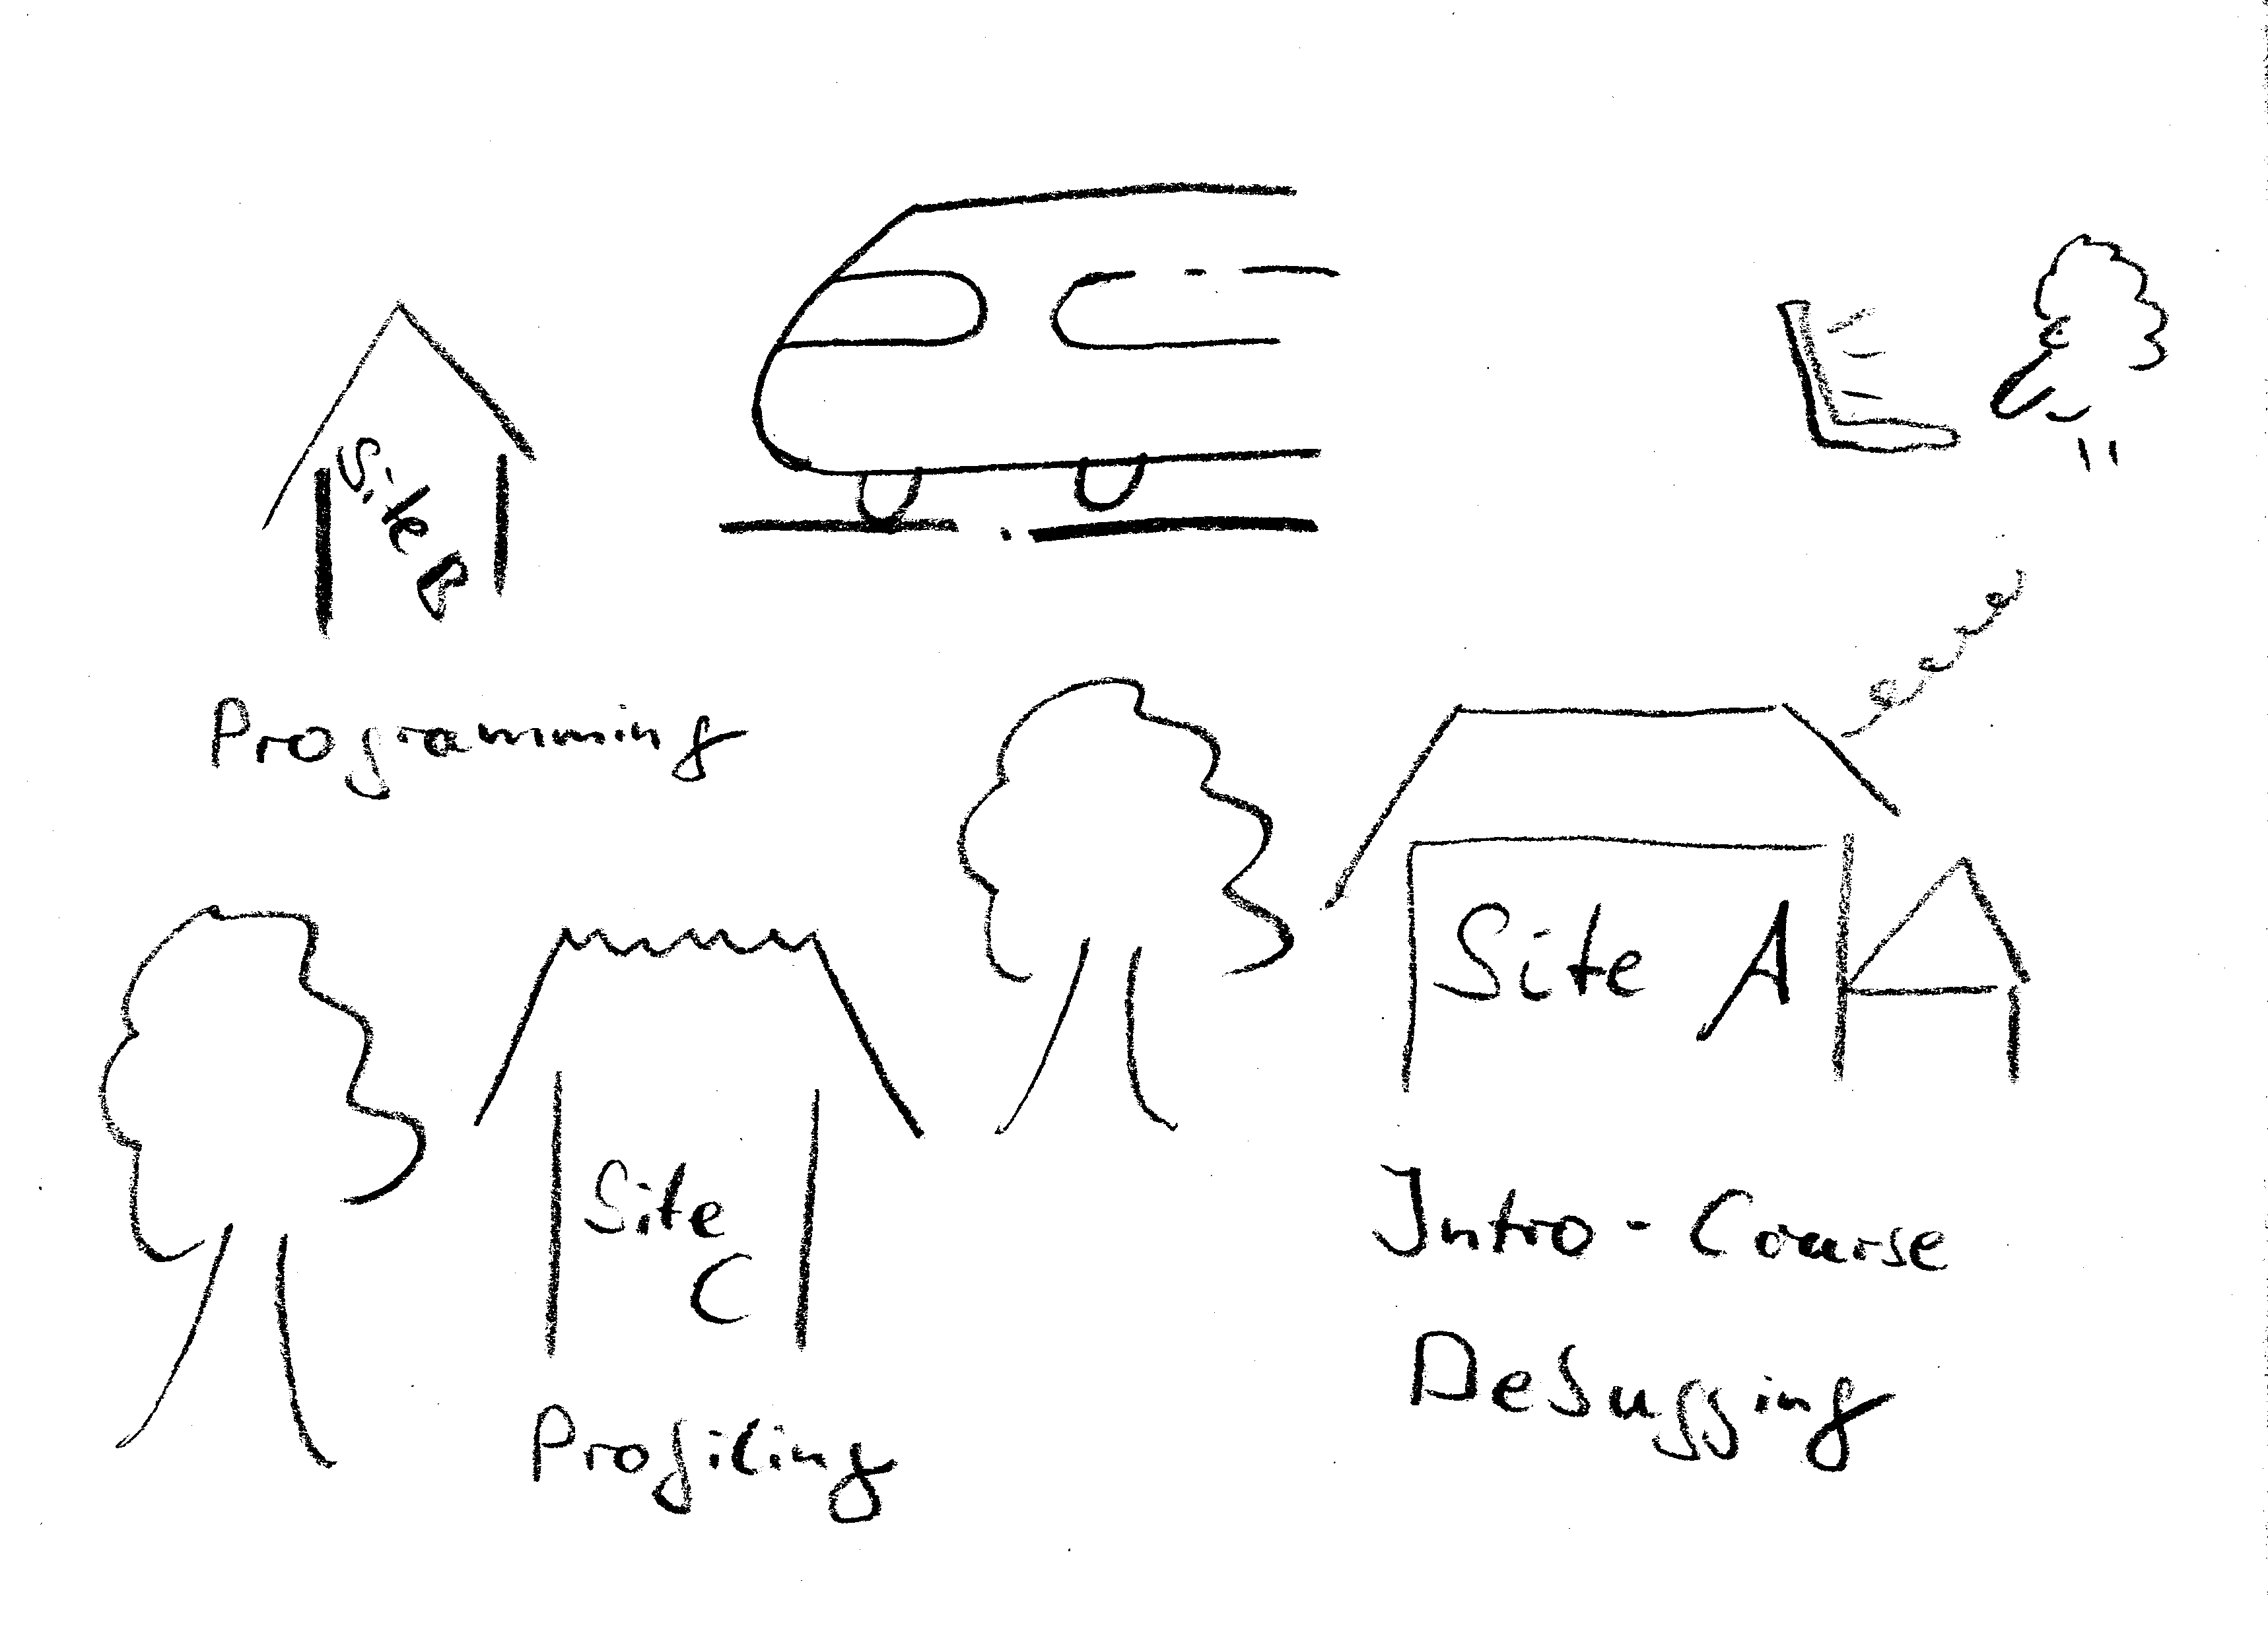 Site B
Programming
Site A
Site
C
Intro-Course
Debugging
Profiling